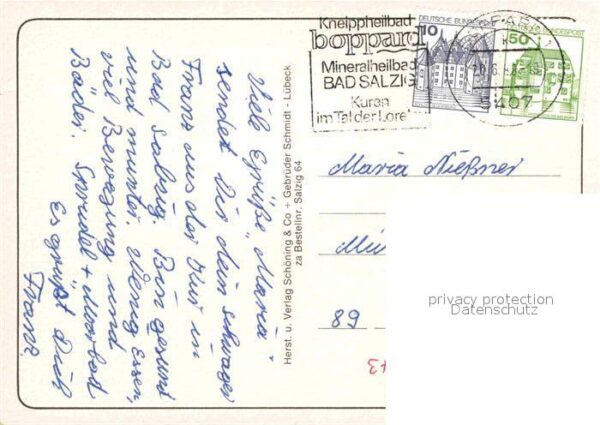 Viele Grüße, Maria
sendet Dir dein schwager
Franz aus der Kur in
Bad salzig. Bin gesund
und munter. Wenig Essen,
viel Bewegung und
Bäder. Sprudel + Moorbad
Es grüßt Dich
Franz.
Herst. u. Verlag Schöning & Co + Gebrüder Schmidt - Lübeck
za Bestellnr. Salzig 64
Kneippheilbad
boppard
Mineralheilbad
BAD SALZIG
Kuren
im Tal der Lorel
DEUTSCHE BUNDESPOST
10
DEUTSCHE BUNDESPOST
50
5407
Maria Nießner
89
privacy protection
Datenschutz